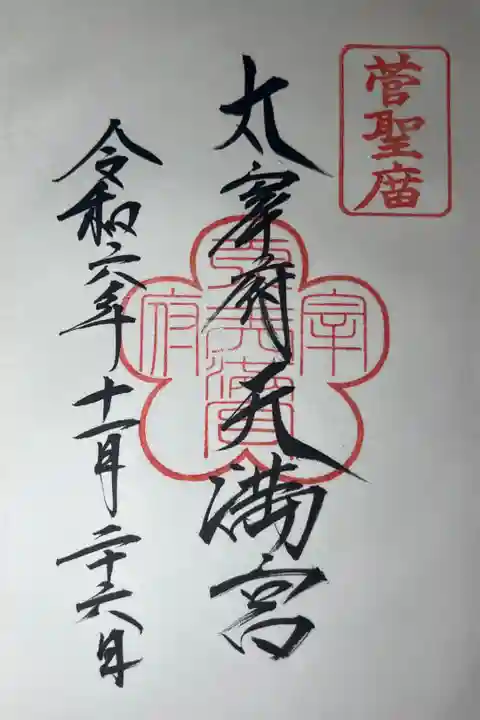 菅聖庿
太宰府天満宮
宰府
令和六年十一月二十六日